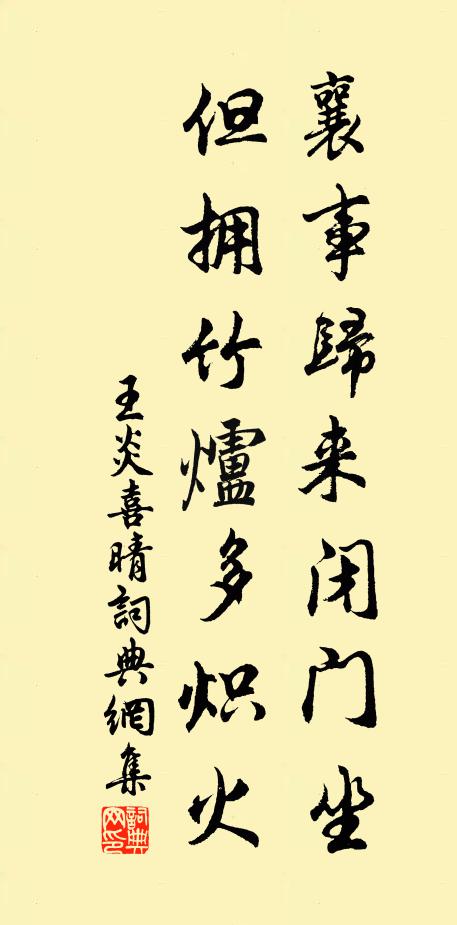 襄事歸来闭门坐
但拥竹爐多炽火
王炎喜晴詞典網集
詞典网印